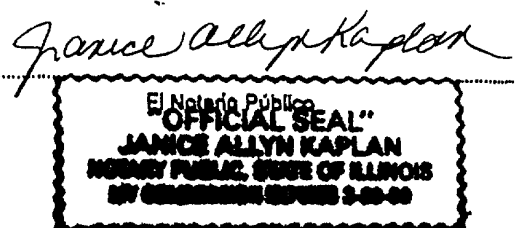 Janice Allyn Kaplan
El Notario Público
"OFFICIAL SEAL"
JANICE ALLYN KAPLAN
NOTARY PUBLIC, STATE OF ILLINOIS
MY COMMISSION EXPIRES